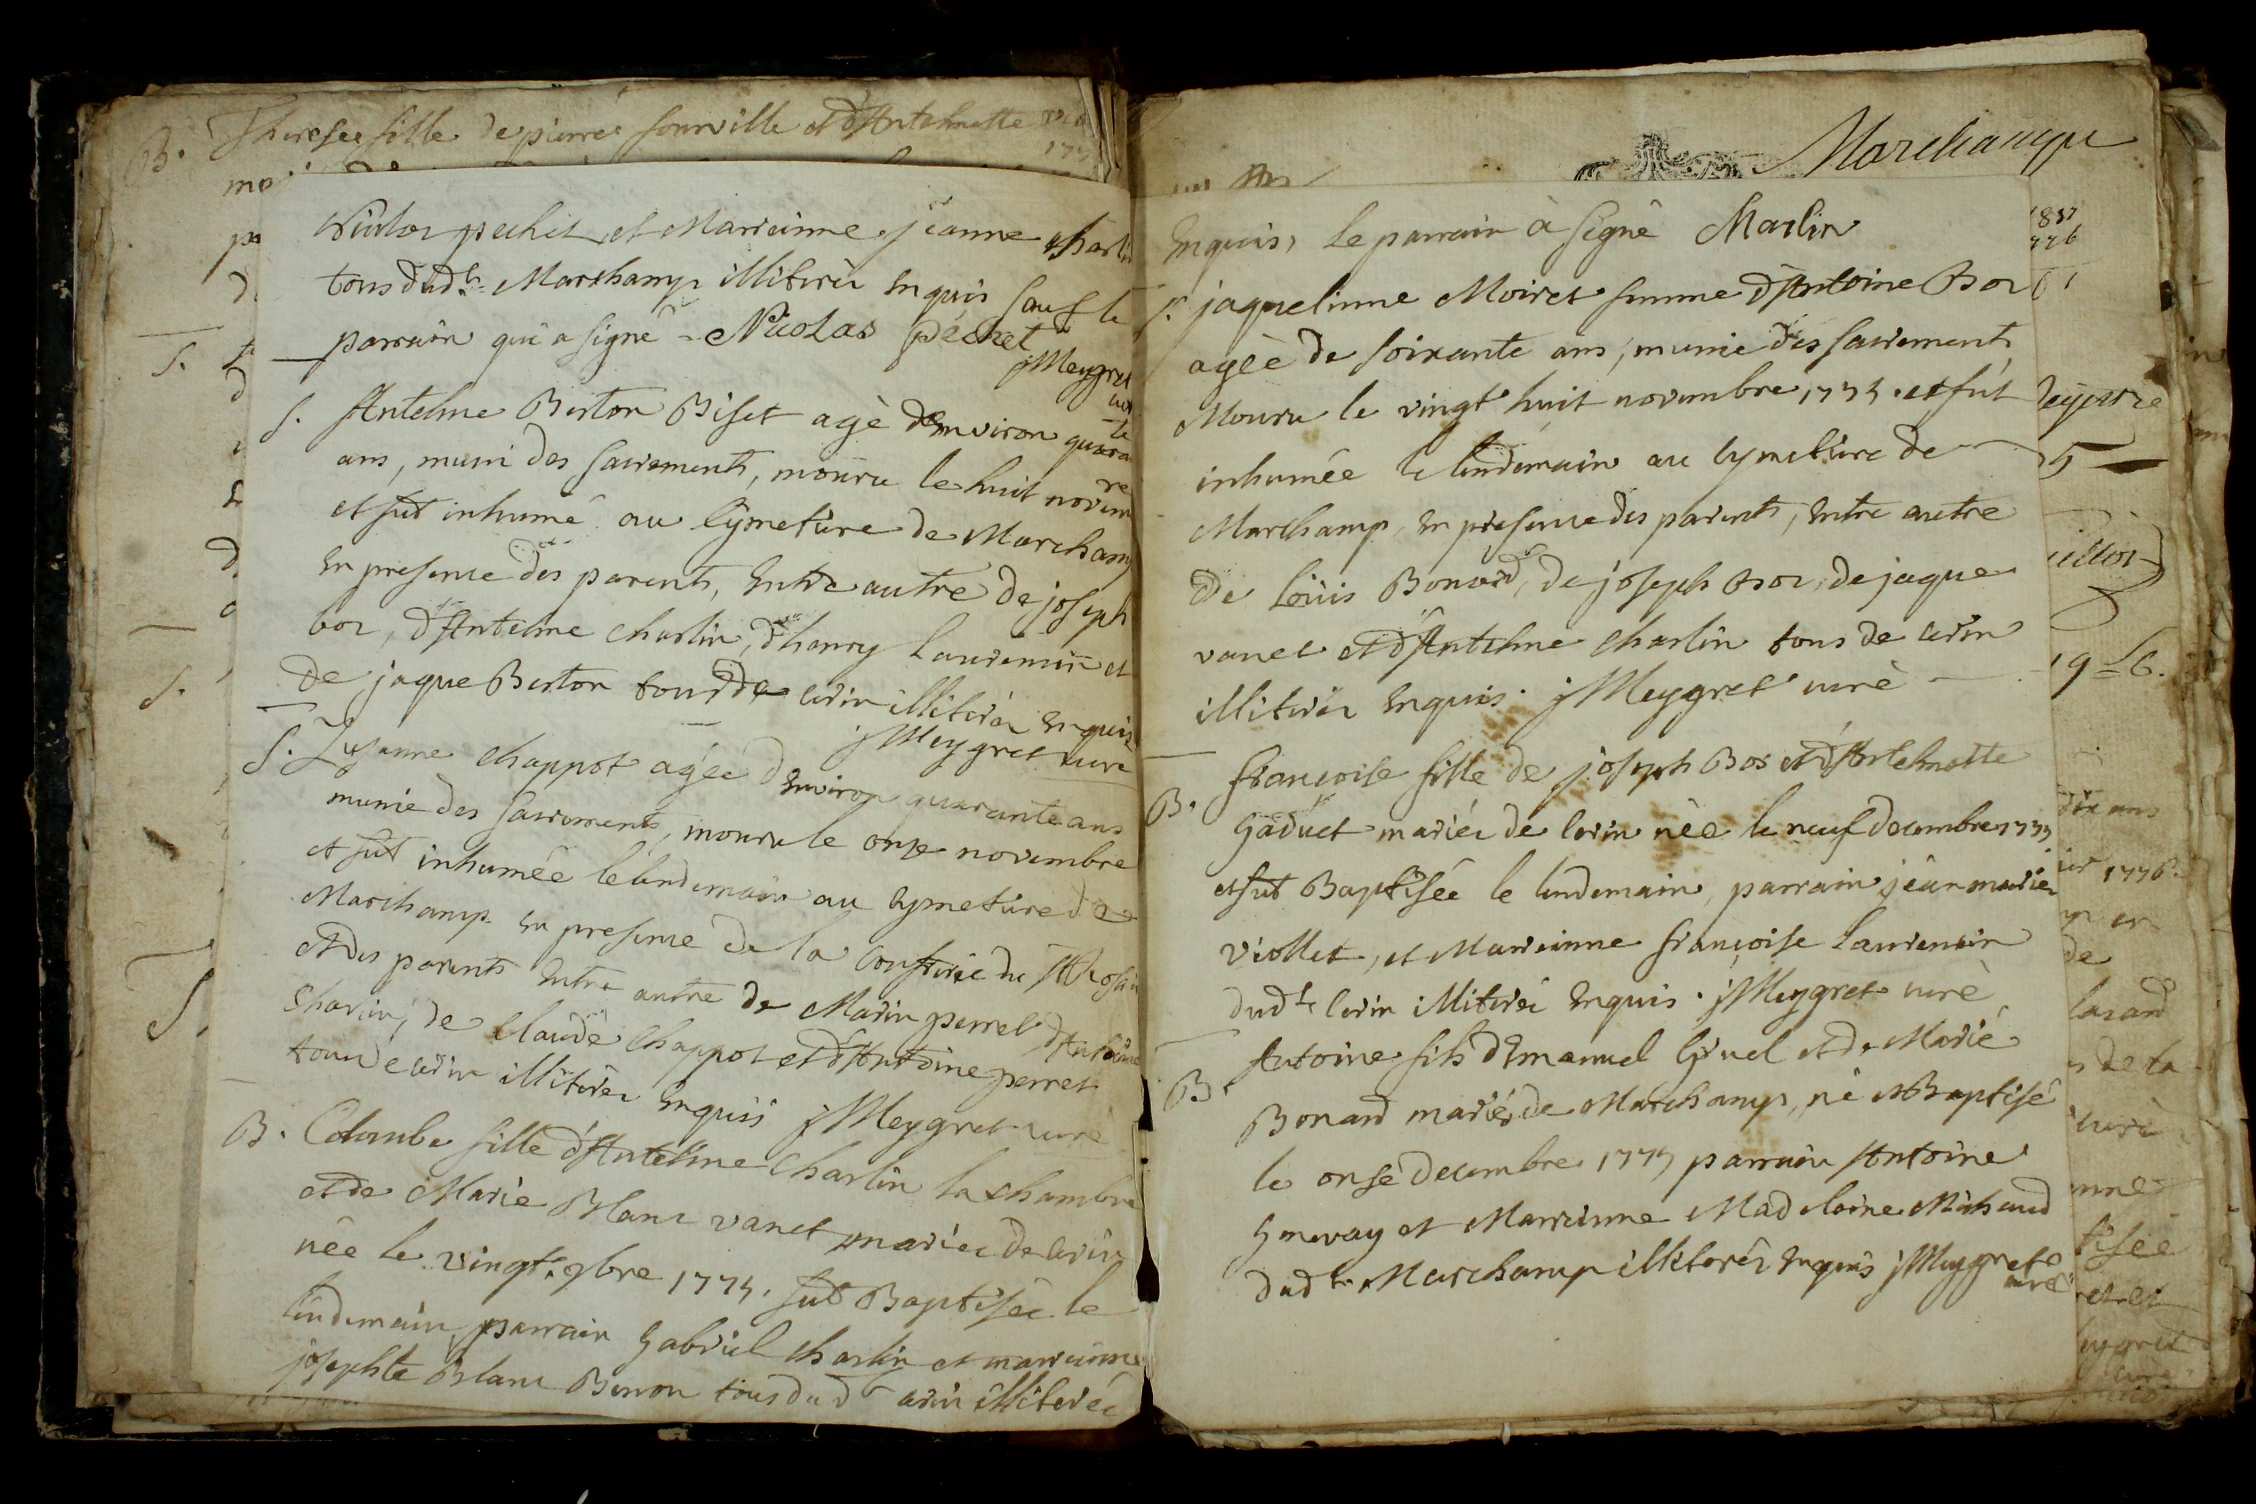 B. Theresee fille de pierre fourville et d'Antelmette
Nicolas pechet et Marrainne jeanne charlin
tous dudt Marchamp illiterés enquis sauf le
parrain qui a signé - Nicolas péchet
jMeygret
S. Antelme Berton Biset agè d'environ quara
ans, muni des sacrements, mouru le huit novem
et fut inhumé au cymetiere de Marchamp
en presence des parents, entre autre de joseph
bor, d'Antelme charlin, d'hanry Laurencin et
de jaque Berton tous de cerin illiterés enquis
jMeygret curé
S. Lusanne chappot agéé d'environ quarante ans
munie des sacrements, mouru le onze novembre
et fut inhumée le lendemain au cymetiere de
Marchamp en presence de la confrerie du st Rosair
et des parents entre autre de Marin perret d'Antoine
charin, de claude chappot et d'Antoine perret
tous de cerin illiterés enquis jMeygret curé
B. Colombe fille d'Antelme charlin la chambre
et de Marie Blanc vanet mariés de cerin
née le vingt 9bre 1775. fut Baptisée le
lendemain, parrain gabriel charlin et marrainne
josephte Blanc Benon tous dudt cerin illiterés
Marchamp
enquis, le parrain à signé Marlin
S. jaquelinne Moiret femme d'Antoine Bor
agèè de soixante ans, munie des sacrements
Mouru le vingt huit novembre 1775. et fut
inhumée le lendemain au cymetiere de
Marchamp, en presence des parents, entre autre
de Loüis Bonard, de joseph Bor, de jaque
vanet et d'Antelme charlin tous de cerin
illiterés enquis. jMeygret curè
B. françoise fille de joseph Bor et d'Antelmette
gaduet mariés de cerin née le neuf decembre 1775
et fut Baptisée le lendemain, parrain jean marie
viollet, et Marrainne françoise Laurencin
dudt cerin illiterés enquis. jMeygret curè
B. Antoine fils d'Emanuel gruel et de Marie
Bonard mariés de Marchamp, né et Baptisé
le onse decembre 1775 parrain Antoine
genevay et Marrainne Madeleine Michaud
dudt Marchamp illiterés enquis jMeygret
curé
1776.